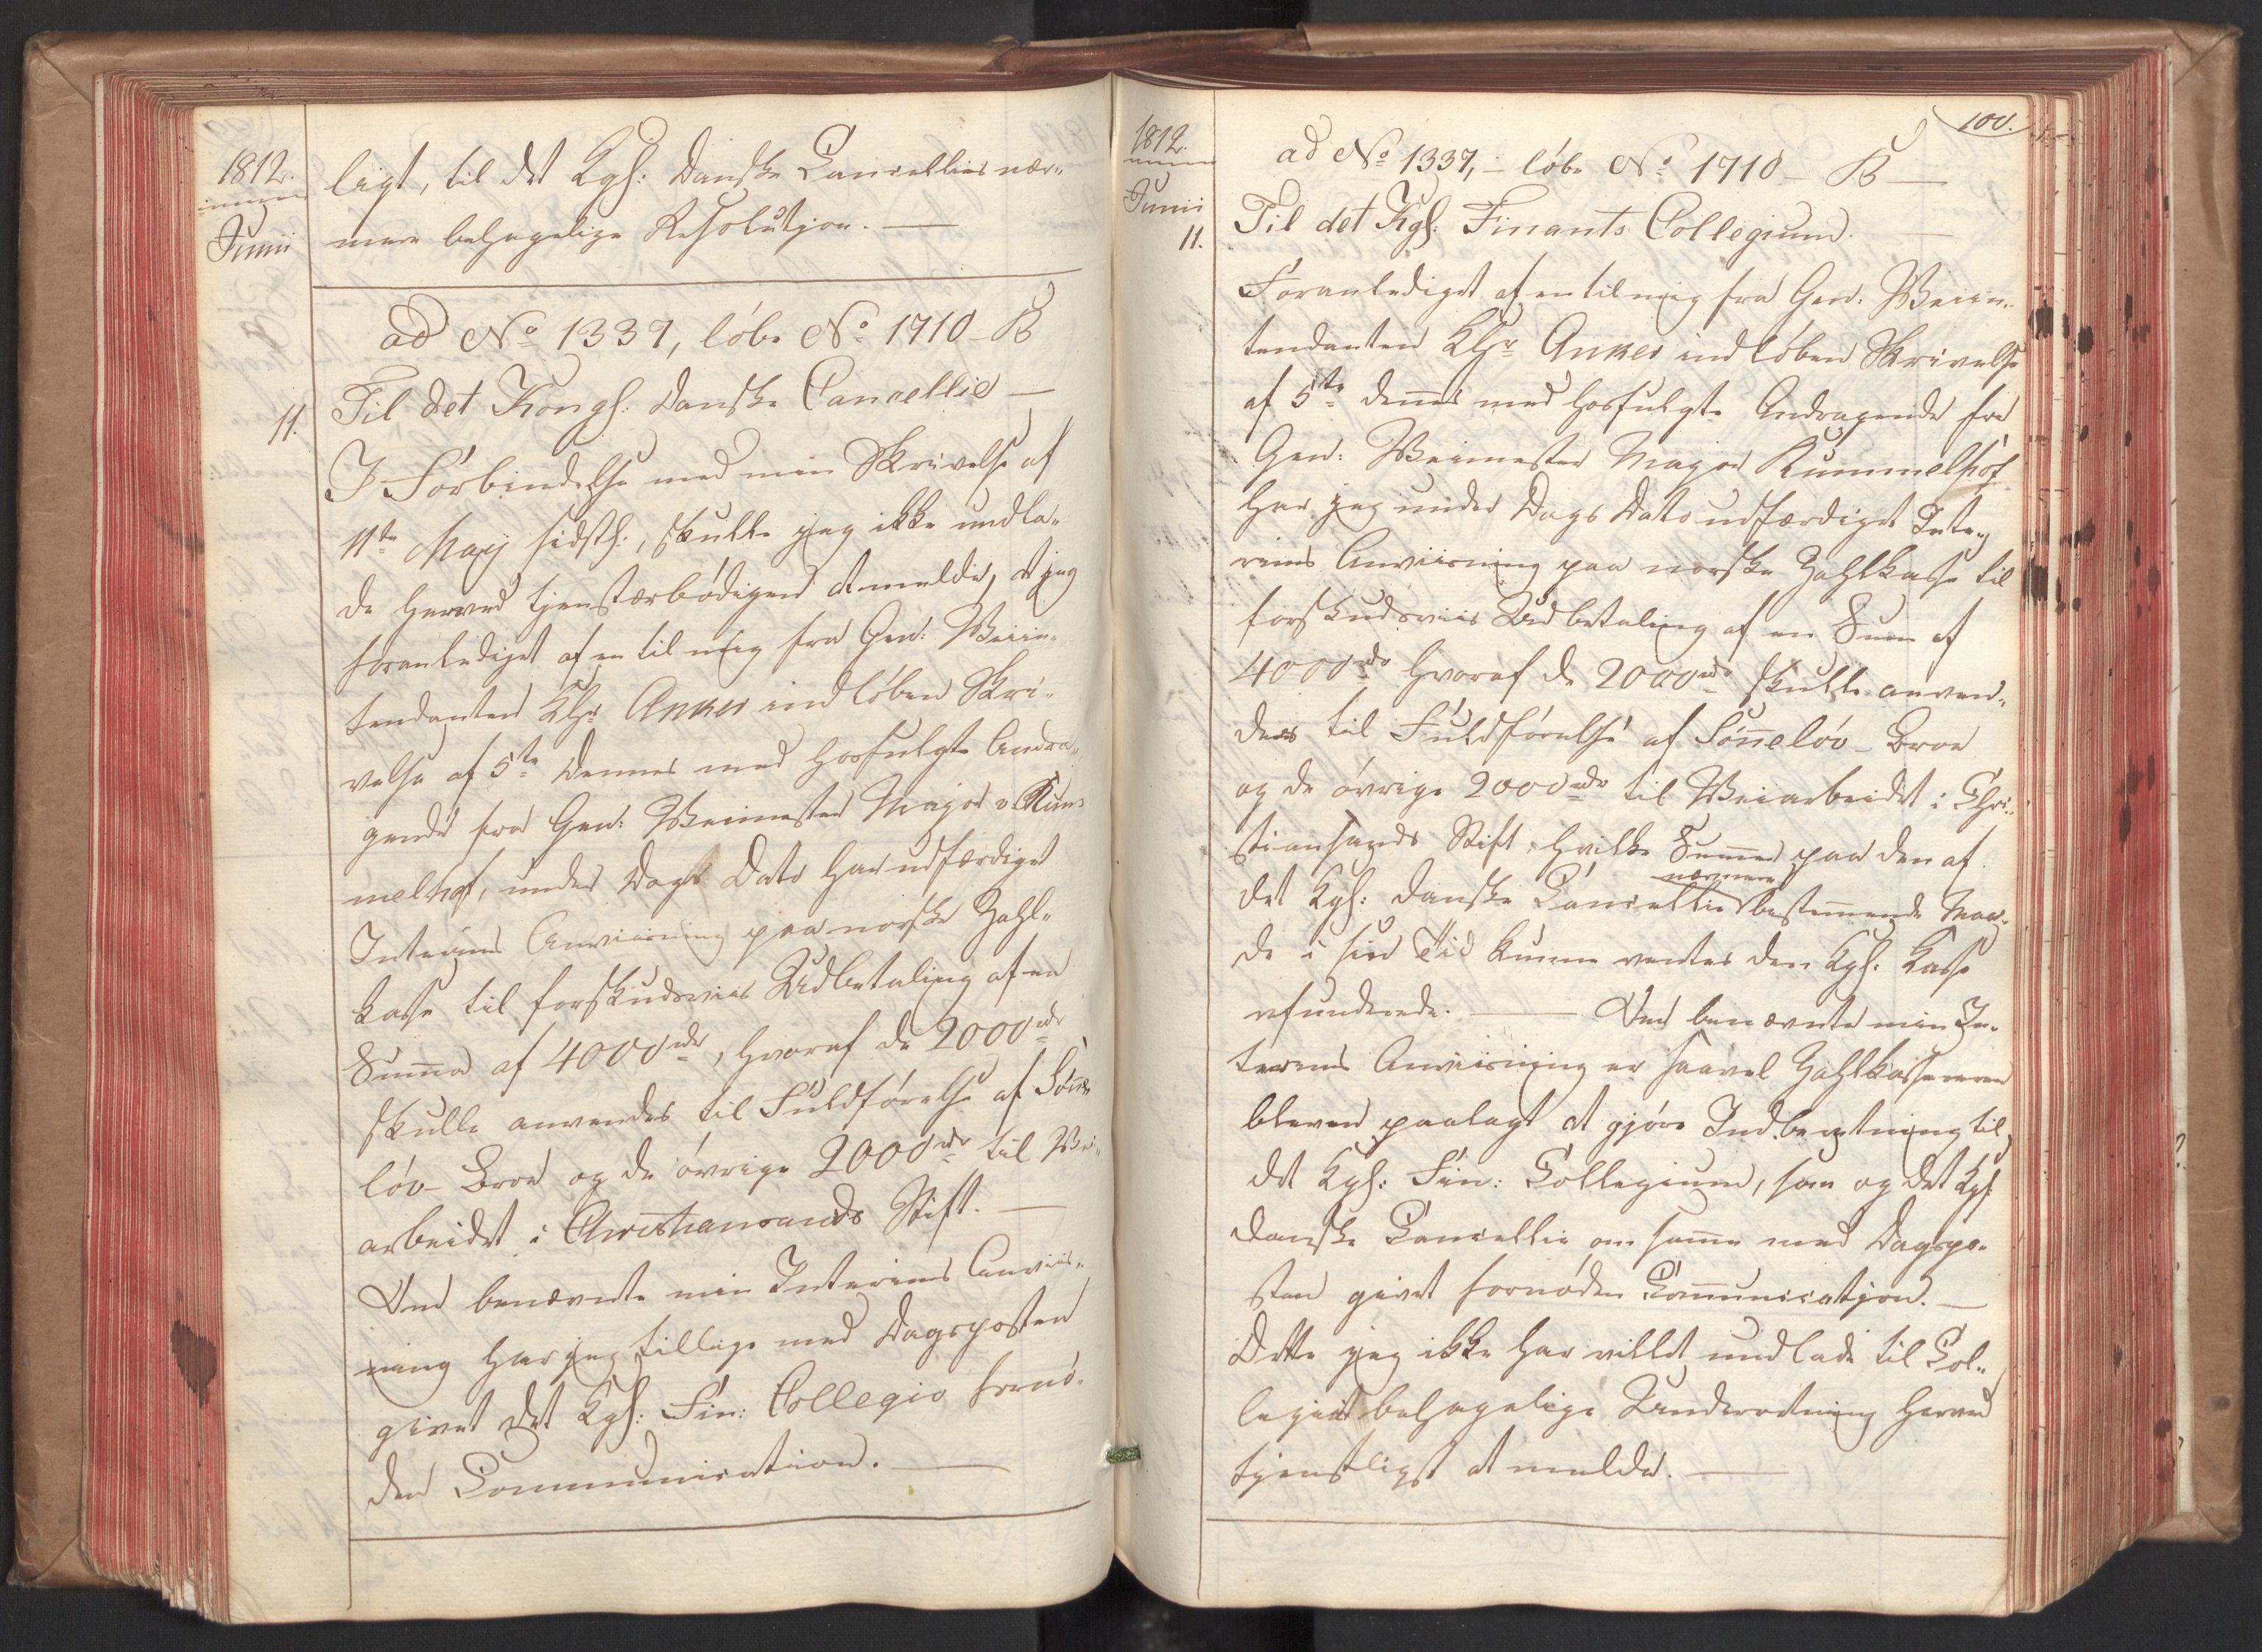 1812.
Junii
ligt, til det Kgl: Danske Cancellies nær„
mere behagelige Resolution. —
ad No 1337, løbe No 1710 - B
11.
Til det Kongl: Danske Cancellie —
I Forbindelse med min Skrivelse af
11te Maij sidstl:, skulle jeg ikke undla„
de herved tjenstærbødigst at melde, at jeg
foranlediget af en til mig fra Gen: Veiin„
tendanten KHr Anker indløben Skri„
velse af 5te dennes med hosfulgte Andra„
gende fra Gen: Veimester Major v. Kum„
melhof, under Dags Dato har udfærdiget
Interims Anviisning paa norske Zahl„
kasse til forskudsviis Udbetaling af en
Summa af 4000 rdr, hvoraf de 2000 rdr
skulle anvendes til Fuldførelse af Sønne„
løv-Broe og de øvrige 2000 rdr til Vei„
arbeidet i Christiansands Stift. —
Om benævnte min Interims Anviis„
ning har jeg tillige med Dagsposten
givet det Kgl: Fin: Collegio fornø„
den Communication. —
100.
1812.
Junii
11.
ad No 1337, - løbe No 1710 - B —
Til det Kgl: Finants Collegium. —
Foranlediget af en til mig fra Gen: Veiin„
tendanten KHr Anker indløben Skrivelse
af 5te dennes med hosfulgte Andragende fra
Gen: Veimester Major Kummelhof
har jeg under Dags Dato udfærdiget Inte„
rims Anviisning paa norske Zahlkasse til
forskudsviis Udbetaling af en Sum af
4000 rdr hvoraf de 2000 rdr skulle anven„
des til Fuldførelse af Sønneløv-Broe
og de øvrige 2000 rdr til Veiarbeidet i Chri„
stiansands Stift, hvilke Summer paa den af
det Kgl: Danske Cancellie nærmere bestemmende Maa„
de i sin Tid kunne ventes den Kgl: Kasse
refunderede. — Om benævnte min In„
terims Anviisning er saavel Zahlkassereren
bleven paalagt at gjøre Indberetning til
det Kgl: Fin: Collegium, som og det Kgl:
Danske Cancellie om samme med Dagspo„
sten givet fornøden Communication. —
Dette jeg ikke har villet undlade til Col„
legiets behagelige Underretning herved
tjenstligst at melde. —